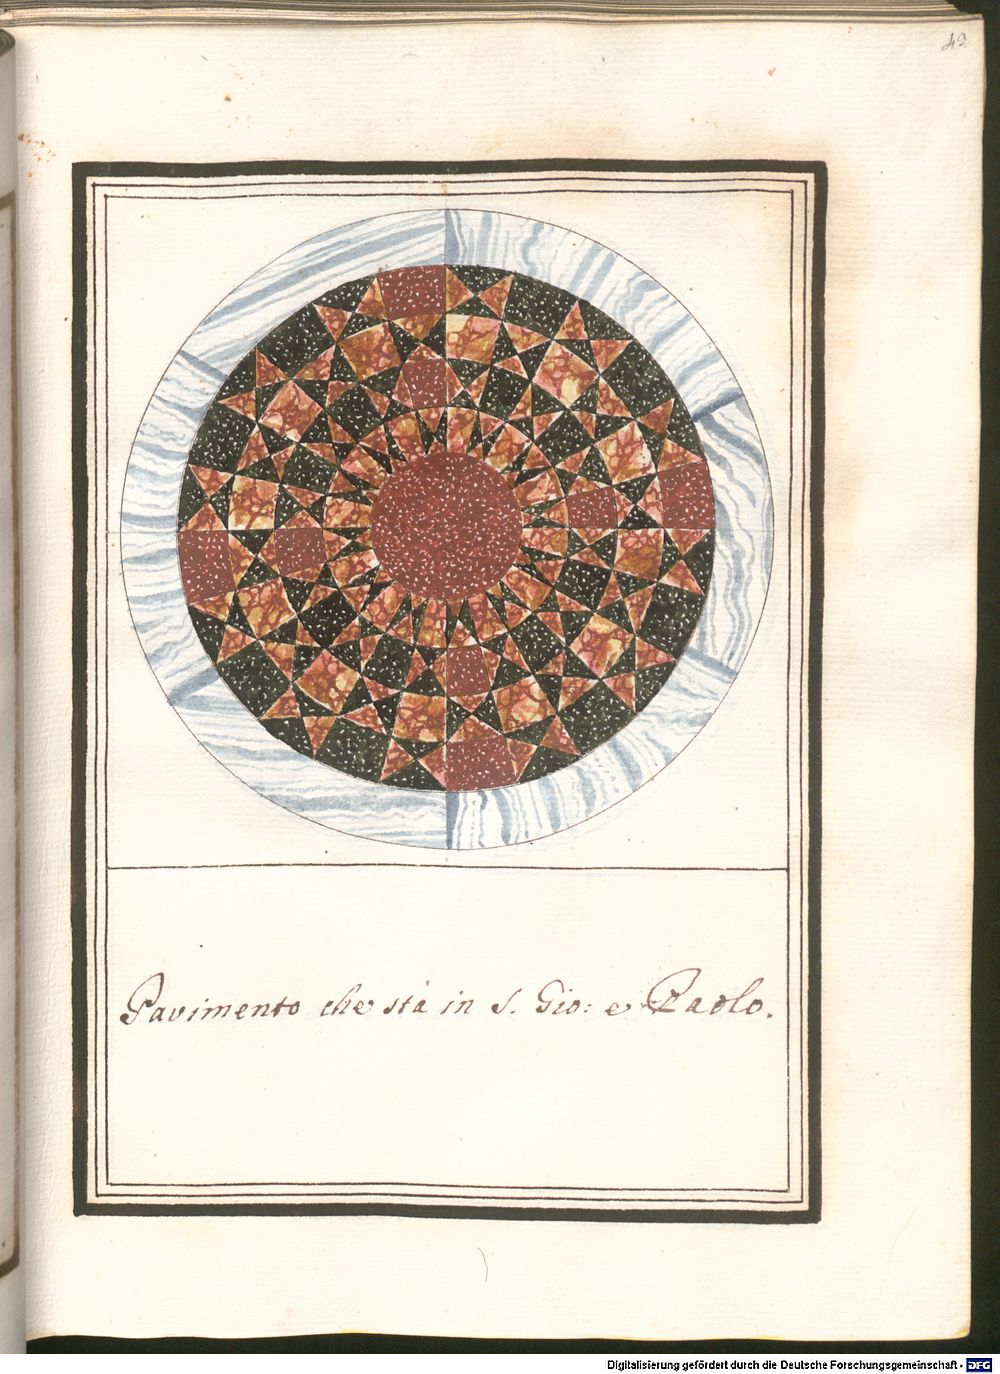 49
Pavimento che stà in S. Gio: e Paolo.
Digitalisierung gefördert durch die Deutsche Forschungsgemeinschaft - DFG